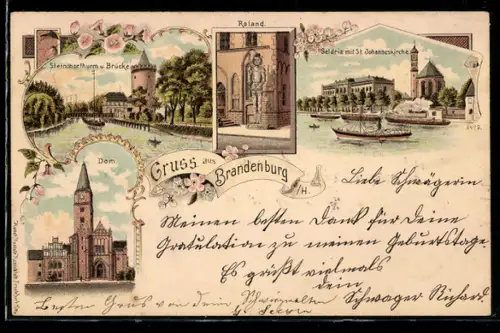 Roland.
Steinthorthurm u. Brücke
Saldria mit St. Johanneskirche.
2473
Dom.
Gruss aus
Brandenburg
a/H.
Liebe Schwägerin
Meinen besten Dank für Deine
Gratulation zu meinen Geburtstage.
Es grüßt vielmals
dein
Schwager Richard.
Besten Gruss von dein